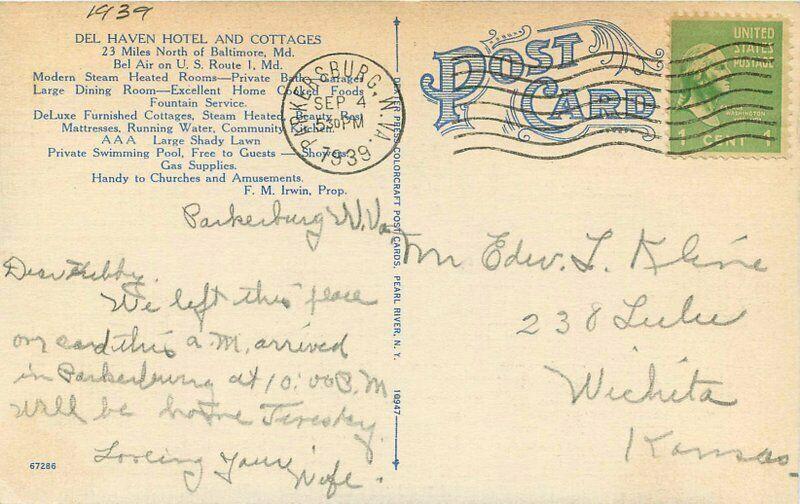 1939
DEL HAVEN HOTEL AND COTTAGES
23 Miles North of Baltimore, Md.
Bel Air on U. S. Route 1, Md.
Modern Steam Heated Rooms—Private Baths, Garages
Large Dining Room—Excellent Home Cooked Foods
Fountain Service.
DeLuxe Furnished Cottages, Steam Heated, Beauty Rest
Mattresses, Running Water, Community Kitchen
AAA Large Shady Lawn
Private Swimming Pool, Free to Guests — Showers.
Gas Supplies.
Handy to Churches and Amusements.
F. M. Irwin, Prop.
PARKERSBURG, W.VA.
SEP 4
530 PM
1939
DEXTER PRESS COLORCRAFT POST CARDS, PEARL RIVER, N. Y. 10947
POST
CARD
UNITED
STATES
POSTAGE
WASHINGTON
1 CENT 1
Parkerburg W. Va.
Dear Hubby.
We left this place
on card this a.M. arrived
in Parkerburg at 10:00 P.M
Will be home Tuesday
Loving Yours
Wife.
Mr Edw. L. Kline
238 Lulu
Wichita
Kansas.
67286